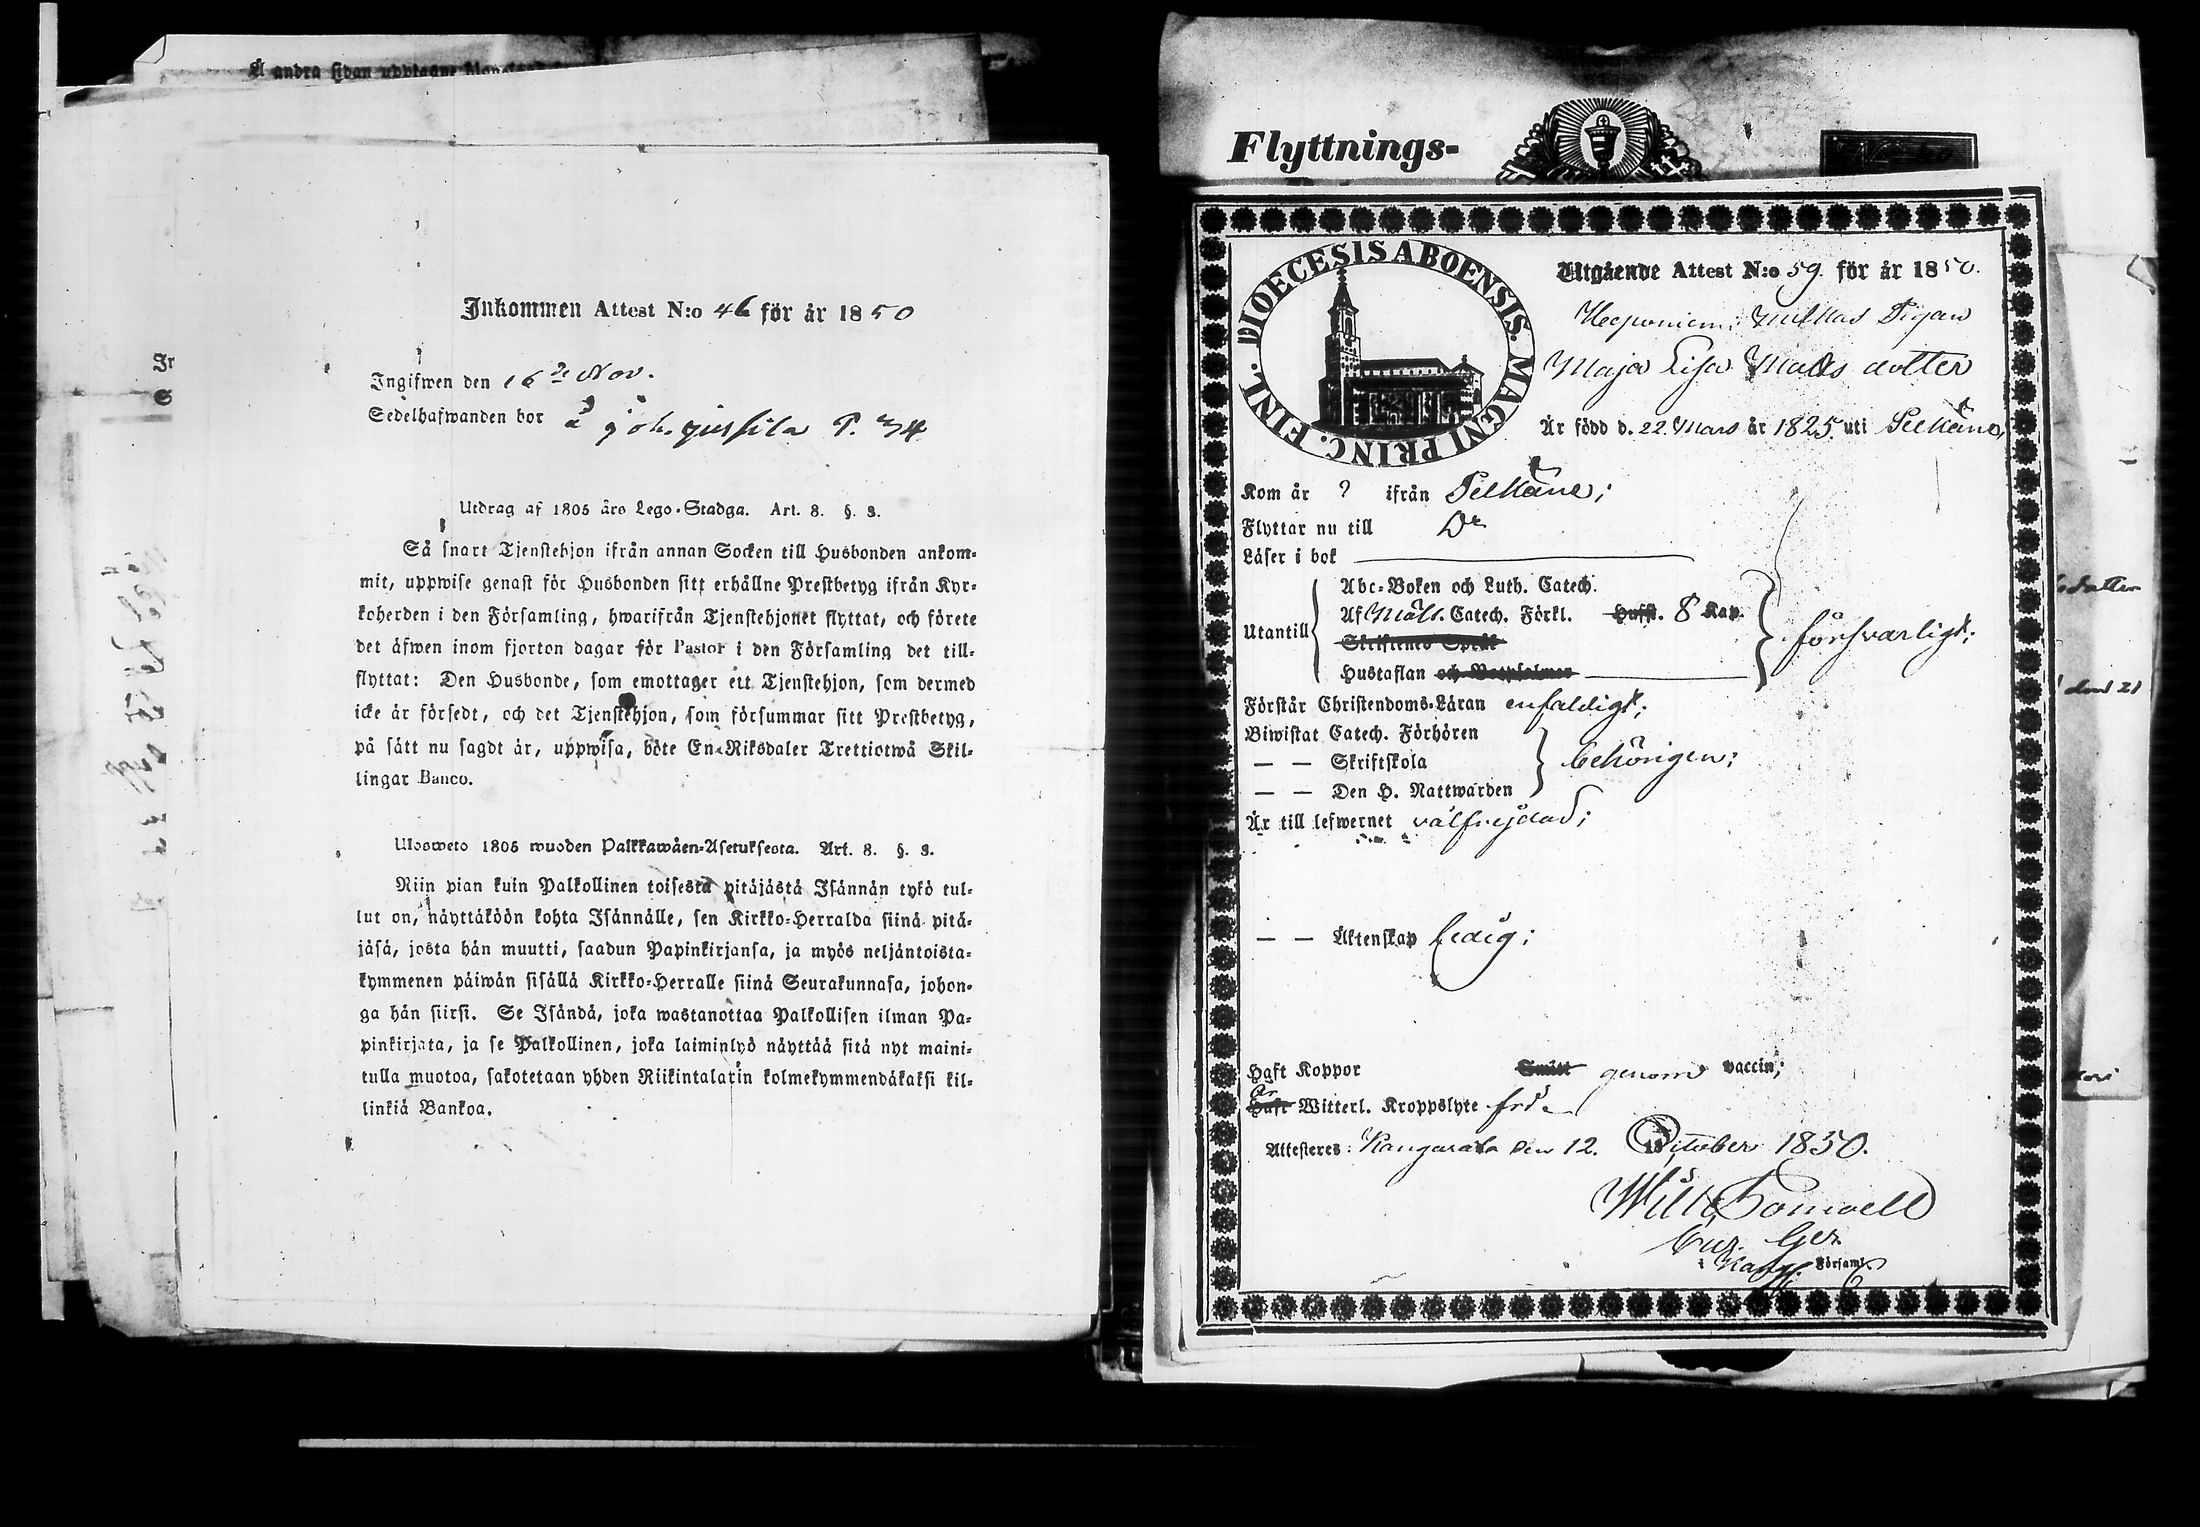 Å andra sidan upptagne
Inkommen Attest N:o 46 för år 1850
Ingifwen den 16de Nov.
Sedelhafwanden bor å
P. 34
Utdrag af 1805 års Lego-Stadga. Art. 8. §. 3.
Så snart Tjenstehjon ifrån annan Socken till Husbonden ankom-
mit, uppwise genast för Husbonden sitt erhållne Prestbetyg ifrån Kyr-
koherden i den Församling, hwarifrån Tjenstehjonet flyttat, och förete
det äfwen inom fjorton dagar för Pastor i den Församling det till-
flyttat: Den Husbonde, som emottager ett Tjenstehjon, som dermed
icke är försedt, och det Tjenstehjon, som försummar sitt Prestbetyg,
på sätt nu sagdt är, uppwisa, böte En Riksdaler Trettiotwå Skil-
lingar Banco.
Ulosweto 1805 wuoden Palkkawäen-Asetuksesta. Art. 8. §. 3.
Niin pian kuin Palkollinen toisesta pitäjästä Isännän tykö tul-
lut on, näyttäköön kohta Isännälle, sen Kirkko-Herralda siinä pitä-
jäsä, josta hän muutti, saadun Papinkirjansa, ja myös neljäntoista-
kymmenen päiwän sisällä Kirkko-Herralle siinä Seurakunnasa, johon-
ga hän siirsi. Se Isändä, joka wastanottaa Palkollisen ilman Pa-
pinkirjata, ja se Palkollinen, joka laiminlyö näyttää sitä nyt maini-
tulla muotoa, sakotetaan yhden Riikintalarin kolmekymmendäkaksi kil-
linkiä Bankoa.
Flyttnings-
DIOECESIS ABOENSIS. MAGNI PRINC. FINL.
Utgående Attest N:o 59. för år 1850.
Pigan
Maja Lisa Matts dotter
Är född d. 22 Mars år 1825. uti Pelkäne,
Kom år ? ifrån Pelkäne;
Flyttar nu till Do
Läser i bok
Utantill
Abc-Boken och Luth. Catech.
Af Möll. Catech. Förkl. Hufst. 8 Kap.
Skriftenes Språk
Hustaflan och Botpsalmer
försvarligt;
Förstår Christendoms-Läran enfaldigt;
Biwistat Catech. Förhören
— — Skriftskola
— — Den H. Nattwarden
behörigen;
Är till lefwernet välfrejdad;
— — Äktenskap ledig;
Haft Koppor Smått genom vaccin;
är
Haft Witterl. Kroppslyte fri.
Attesteres: Kangasala den 12. October 1850.
Församl.